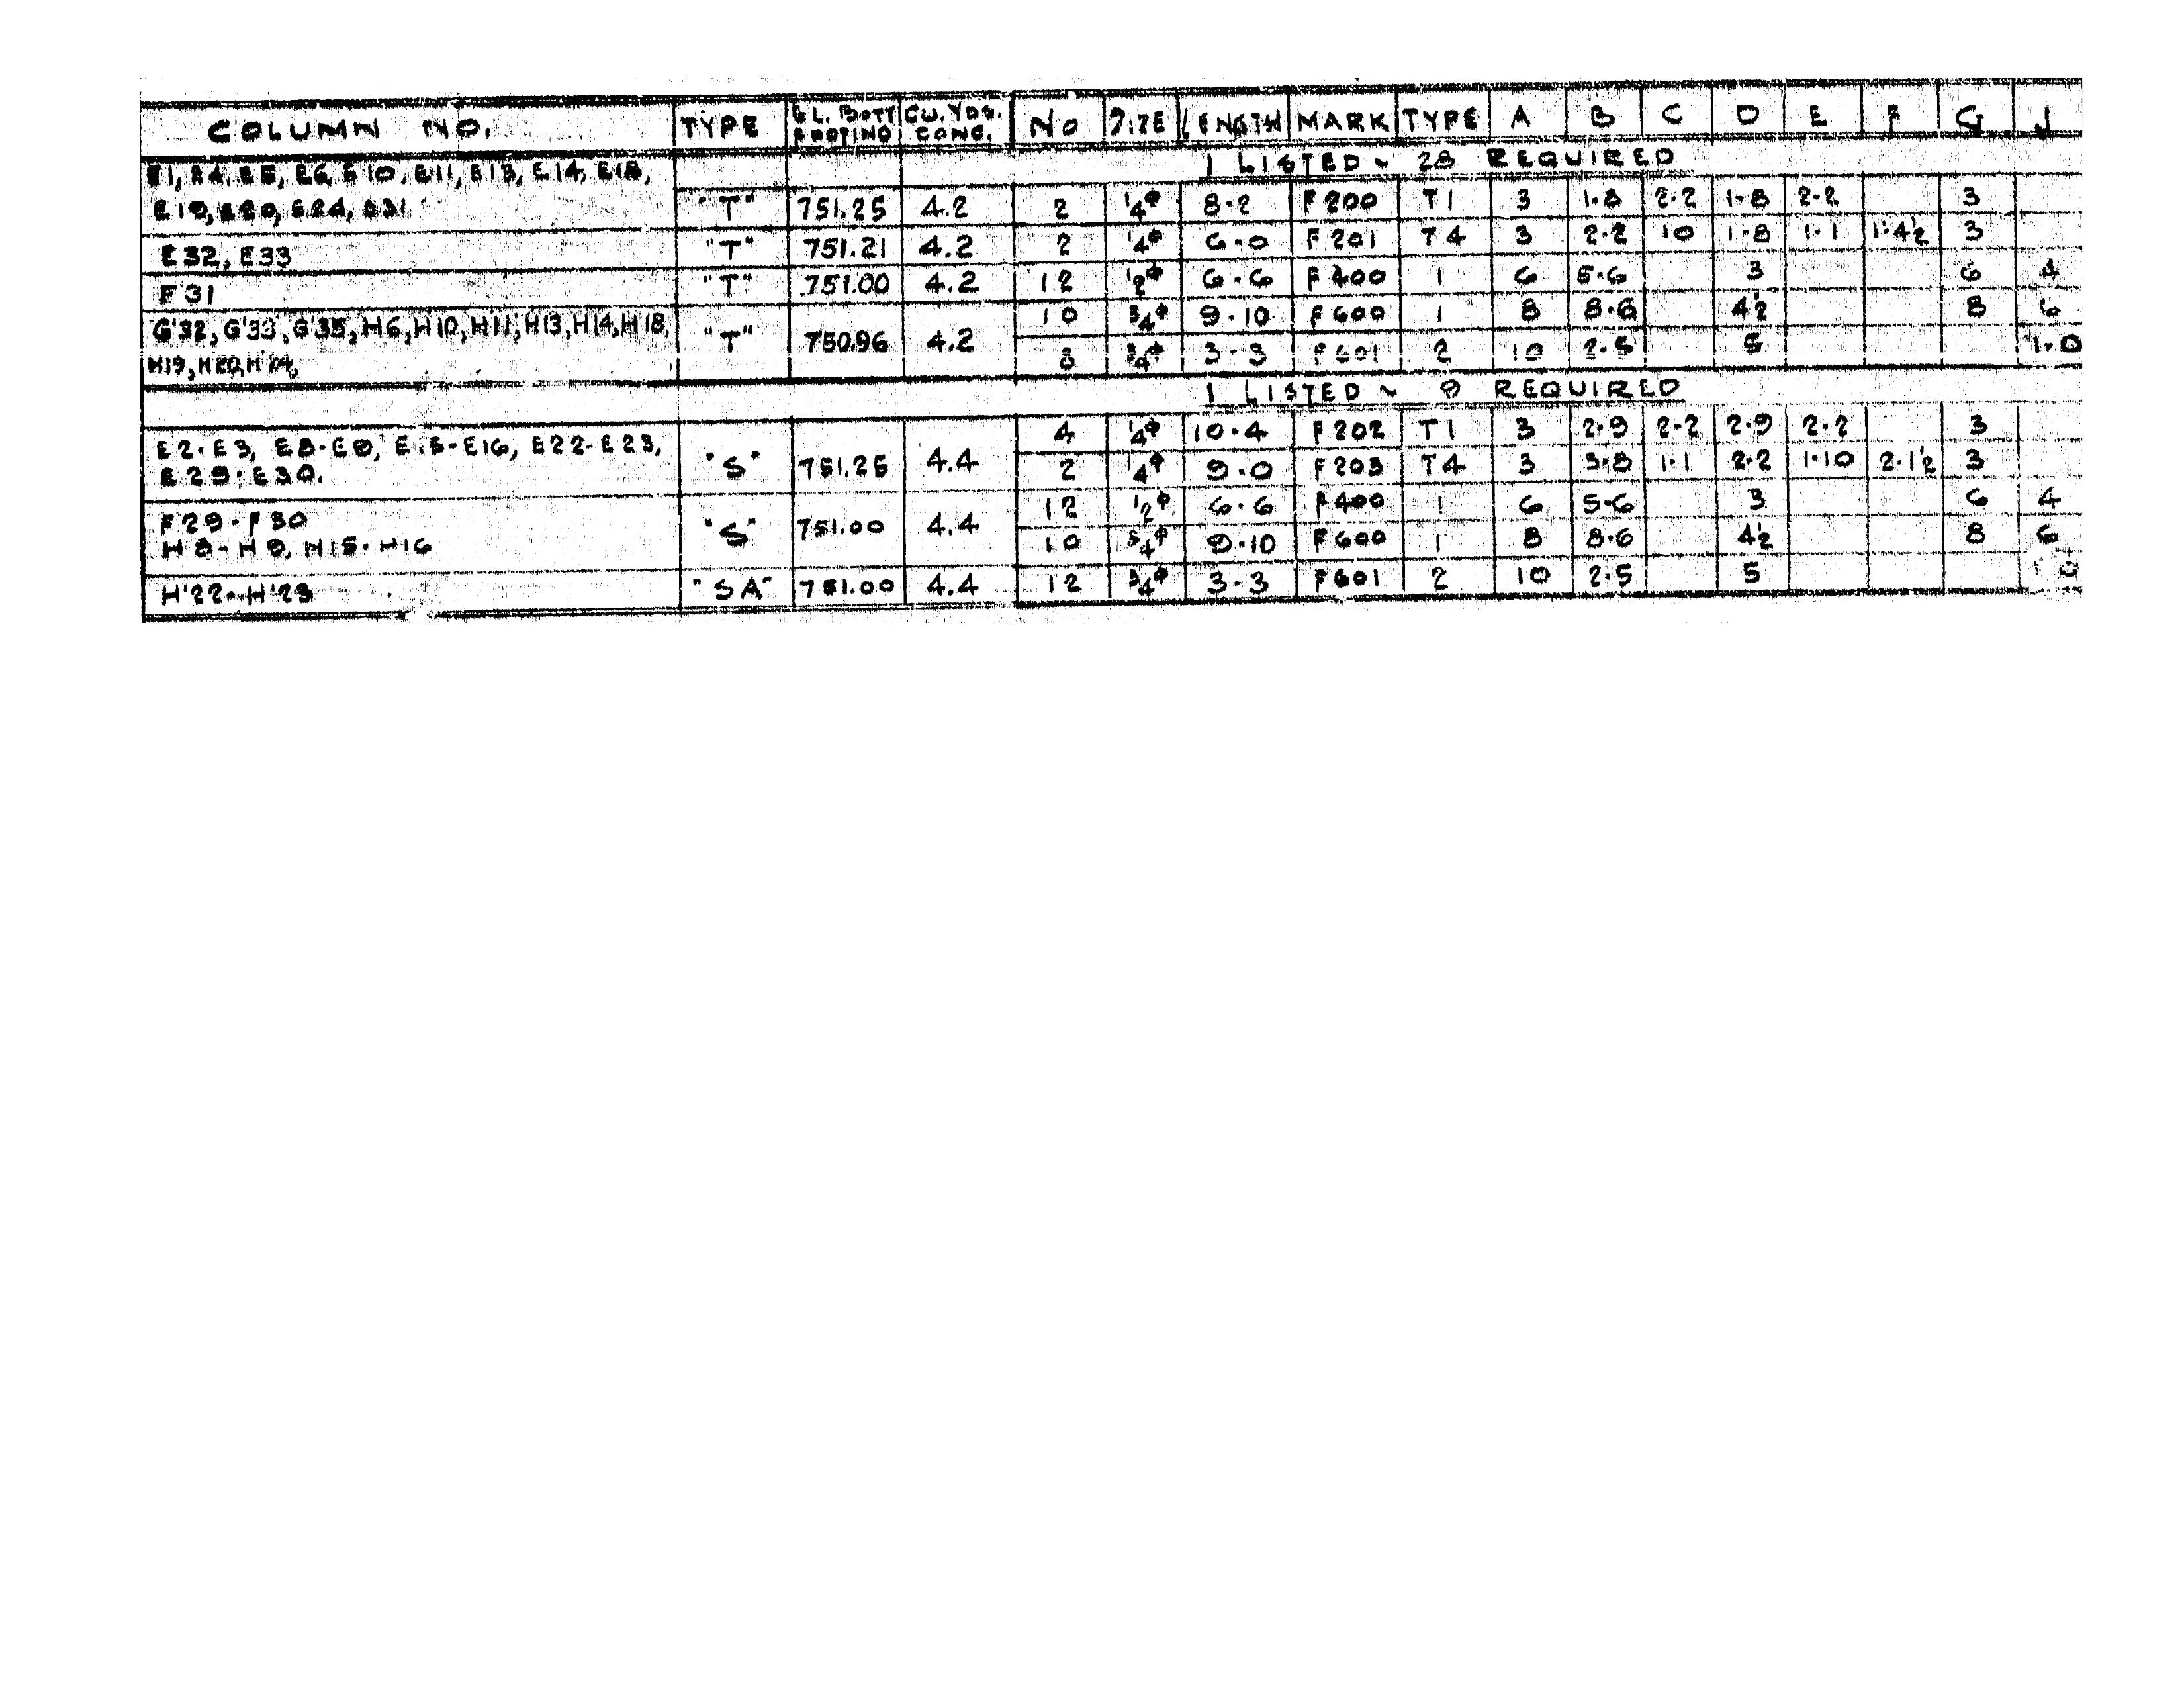 COLUMN NO. TYPE EL. BOTT FOOTING CU. YDS. CONC. No SIZE LENGTH MARK TYPE A B C D E F G J
1 LISTED ~ 28 REQUIRED
E1, E4, E5, E6, E10, E11, E13, E14, E18,
E19, E20, E24, E31 "T" 751.25 4.2 2 1/4φ 8-2 F200 T1 3 1-8 2-2 1-8 2-2 3
E32, E33 "T" 751.21 4.2 2 1/4φ 6-0 F201 T4 3 2-2 10 1-8 1-1 1-4½ 3
F31 "T" 751.00 4.2 12 1/2φ 6-6 F400 1 6 5-6 3 6 4
G'32, G'33, G'35, H6, H10, H11, H13, H14, H18, "T" 750.96 4.2 10 3/4φ 9-10 F600 1 8 8-6 4½ 8 6
H19, H20, H'24, 8 3/4φ 3-3 F601 2 10 2-5 5 1-0
1 LISTED ~ 9 REQUIRED
E2-E3, E8-E9, E15-E16, E22-E23, "S" 751.25 4.4 4 1/4φ 10-4 F202 T1 3 2-9 2-2 2-9 2-2 3
E29-E30. 2 1/4φ 9-0 F203 T4 3 3-8 1-1 2-2 1-10 2-1½ 3
F29-F30 "S" 751.00 4.4 12 1/2φ 6-6 F400 1 6 5-6 3 6 4
H8-H9, H15-H16 10 3/4φ 9-10 F600 1 8 8-6 4½ 8 6
H'22-H'23 "SA" 751.00 4.4 12 3/4φ 3-3 F601 2 10 2-5 5